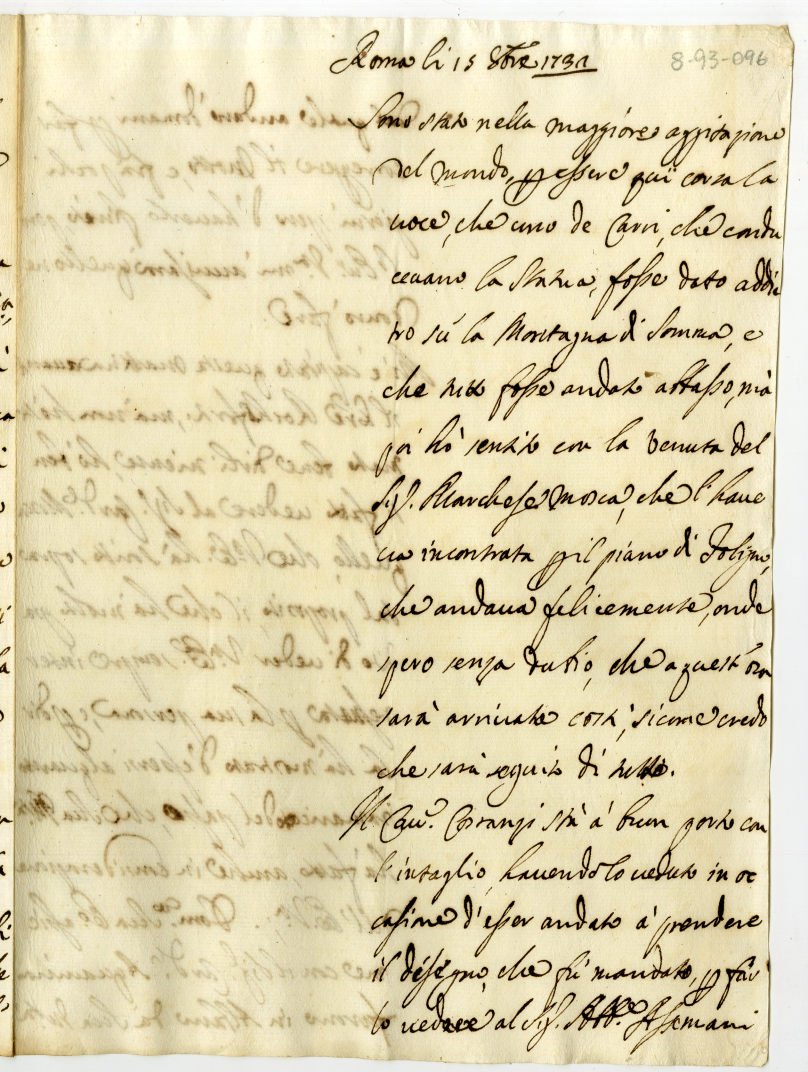 Roma li 15 8bre 1731
8-93-096
Sono stato nella maggiore aggitazione
del mondo, p essere quì corsa la
voce, che uno de Carri, che condu
cevano la Statua, fosse dato addie
tro sù la Montagna di Somma, e
che tutto fosse andato abbasso, mà
poi hò sentito con la venuta del
Sig.r Marchese Mosca, che l'have
va incontrata p il piano di Foligno,
che andava felicemente, onde
spero senza dubio, che a quest'ora
sarà arrivata costì, sicome credo
che sarà seguito di tutto.
Il Cav.r stà à buon porto con
l'intaglio, havendolo veduto in oc
casione d'esser andato à prendere
il disegno, che fù mandato, p far
lo vedere al Sig.r Abb.e Assemani